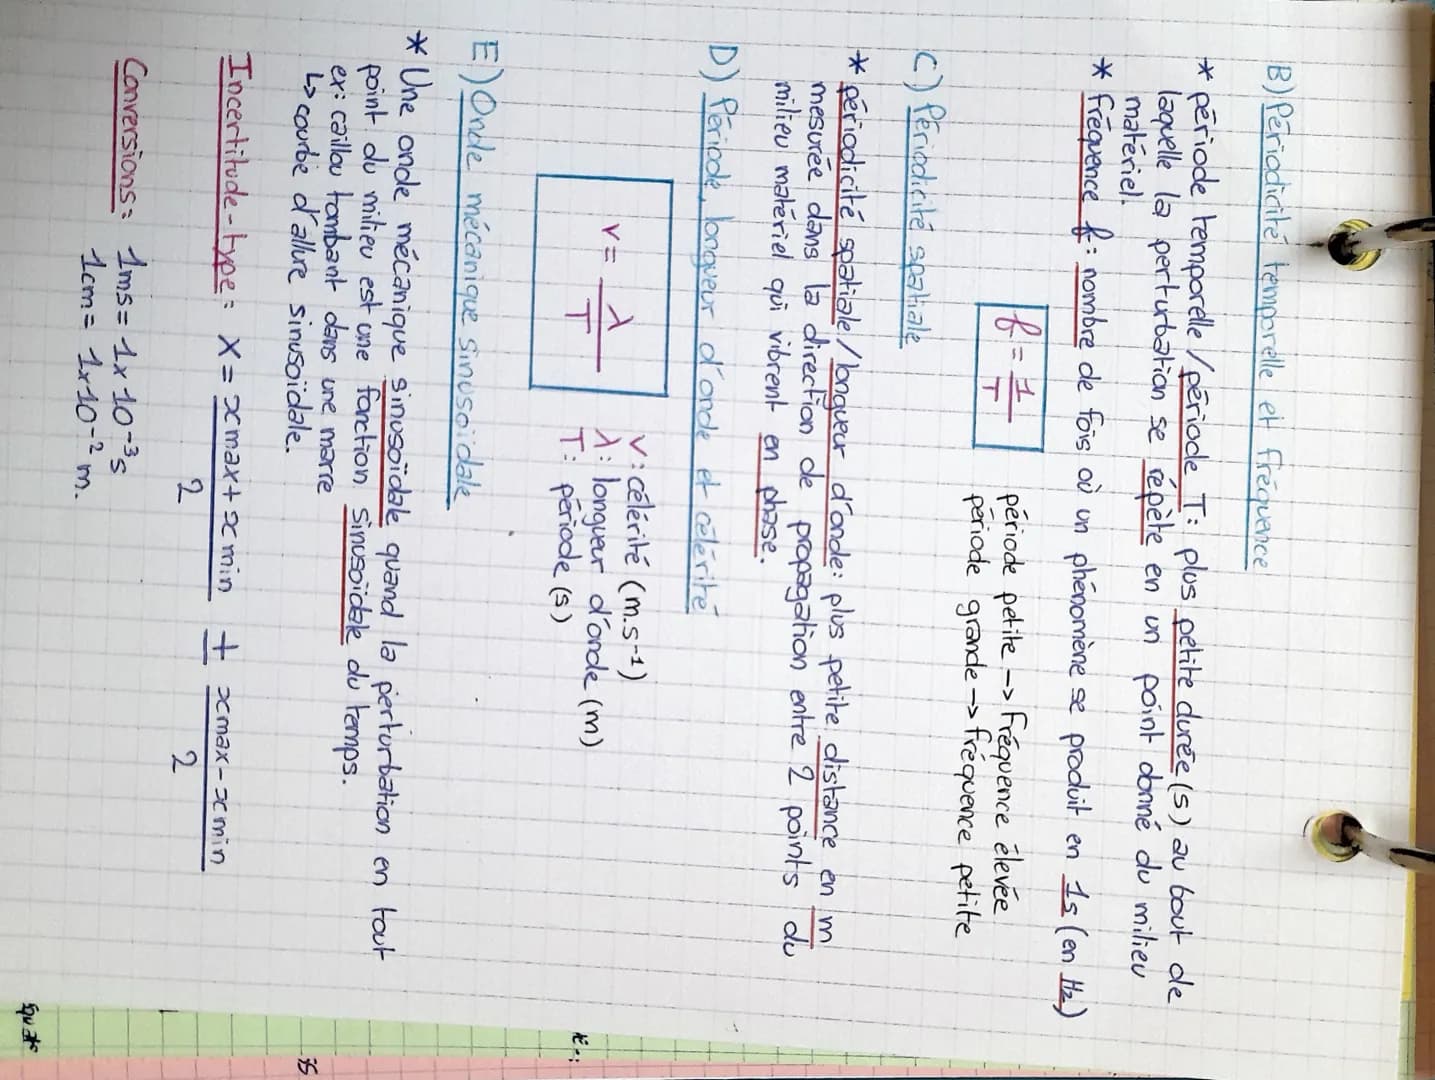 B) Périodicité temporelle et fréquence
* période temporelle/période T: plus petite durée (s) au bout de
laquelle la perturbation se répète en un point donné du milieu
matériel.
* fréquence f: nombre de fois où un phénomène se produit en 1s (en Hz)
f = 1/T
période petite -> fréquence élevée
période grande -> fréquence petite
C) Périodicité spatiale
* périodicité spatiale/longueur d'onde: plus petite distance en m
mesurée dans la direction de propagation entre 2 points du
milieu matériel qui vibrent en phase.
D) Période, longueur d'onde et célérité
v = λ/T
v: célérité (m.s⁻¹)
λ: longueur d'onde (m)
T: période (s)
E) Onde mécanique sinusoïdale
* Une onde mécanique sinusoïdale quand la perturbation en tout
point du milieu est une fonction sinusoïdale du temps.
ex: caillou tombant dans une marre
↳ courbe d'allure sinusoïdale.
Incertitude-type: X = (xmax + xmin)/2 ± (xmax - xmin)/2
Conversions: 1ms = 1x10⁻³ s
1cm = 1x10⁻² m.